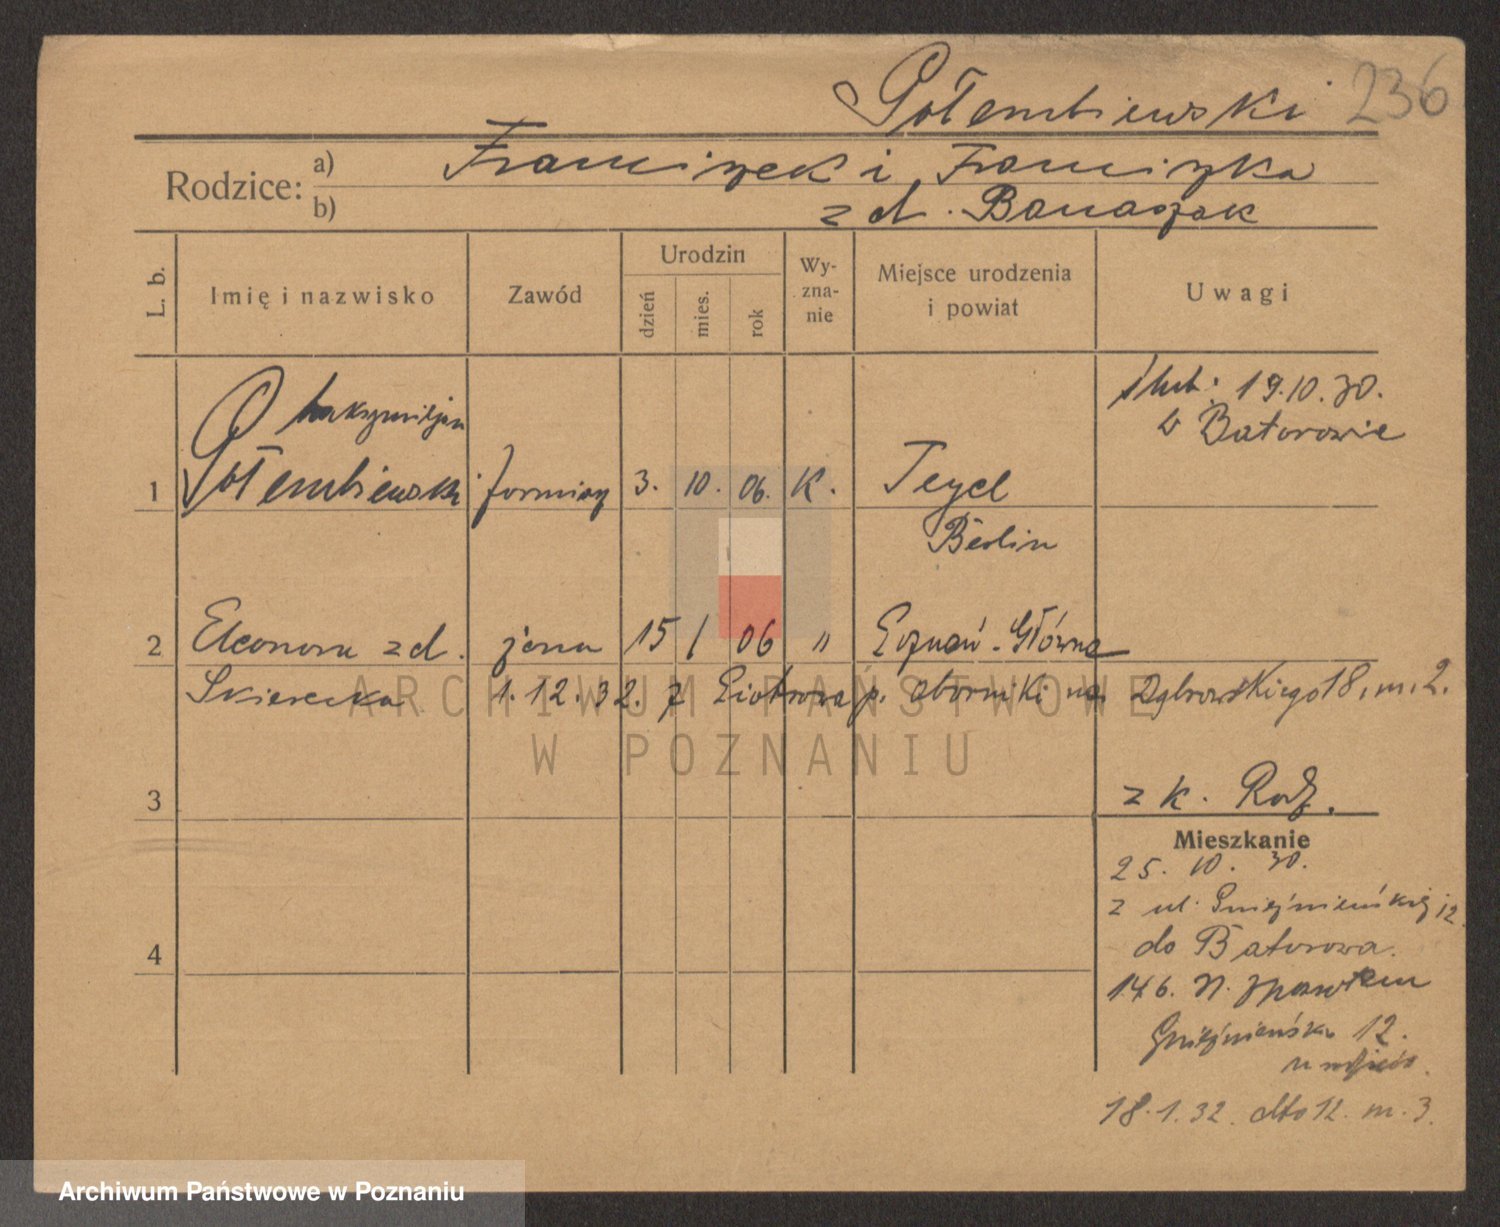 Gołembiewski 236
Rodzice: a) Franciszek i Franciszka
b) z d. Banaszak
L. b. Imię i nazwisko Zawód Urodzin dzień mies. rok Wy-zna-nie Miejsce urodzenia i powiat Uwagi
ślub: 19.10.30.
w Batorowie
Maksymiljan
1 Gołembiewski formierz 3. 10. 06. K. Tegel
Berlin
2 Eleonora z d. żona 15 1 06 " Poznań-Główna
Skierecka 1.12.32. z Piotrowa p. Oborniki na Dąbrowskiego 18, m. 2.
3 z k. Rodz.
Mieszkanie
25. 10. 30.
z ul. Gnieźnieńskiej 12
do Batorowa.
4
Gnieźnieńska 12.
18.1.32. dtto 12. m. 3.
ARCHIWUM PAŃSTWOWE
W POZNANIU
Archiwum Państwowe w Poznaniu